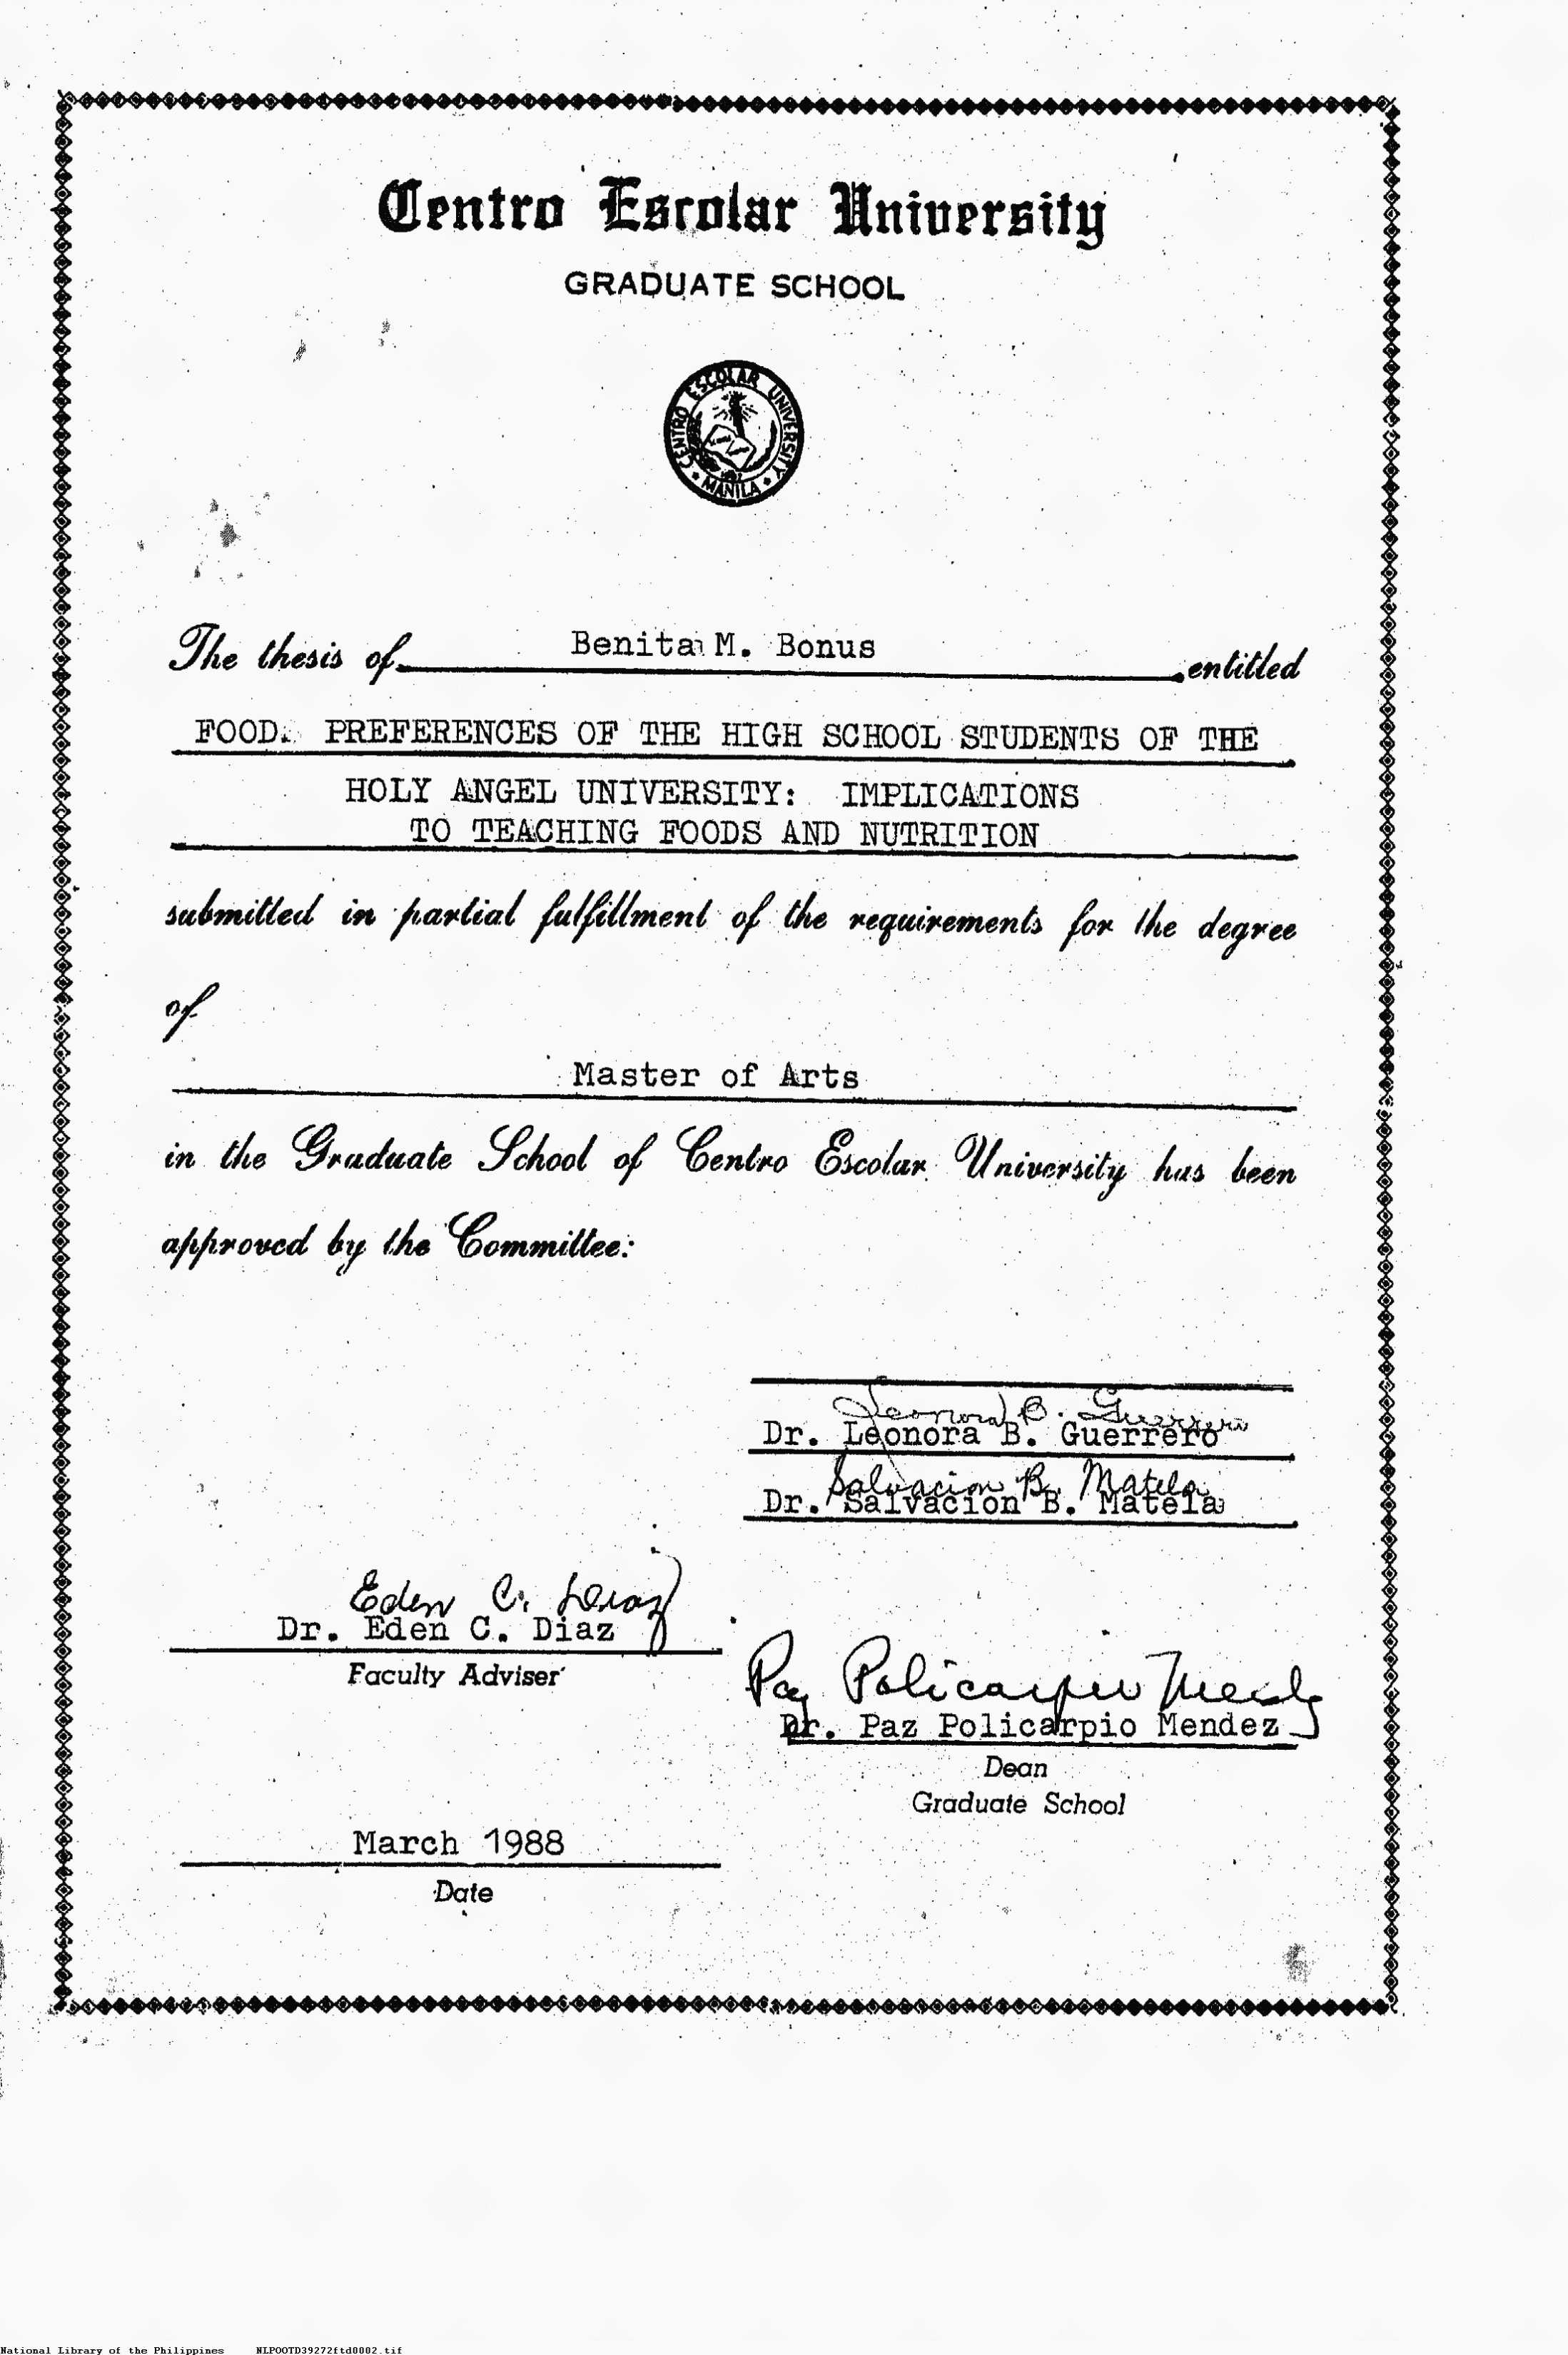 Centro Escolar University
GRADUATE SCHOOL
CENTRO ESCOLAR UNIVERSITY
MANILA
The thesis of Benita M. Bonus entitled
FOOD PREFERENCES OF THE HIGH SCHOOL STUDENTS OF THE
HOLY ANGEL UNIVERSITY: IMPLICATIONS
TO TEACHING FOODS AND NUTRITION
submitted in partial fulfillment of the requirements for the degree
of
Master of Arts
in the Graduate School of Centro Escolar University has been
approved by the Committee:
Leonora B. Guerrero
Dr. Leonora B. Guerrero
Salvacion B. Matela
Dr. Salvacion B. Matela
Eden C. Diaz
Dr. Eden C. Diaz
Faculty Adviser
Paz Policarpio Mendez
Dr. Paz Policarpio Mendez
Dean
Graduate School
March 1988
Date
National Library of the Philippines NLPOOTD39272ftd0002.tif